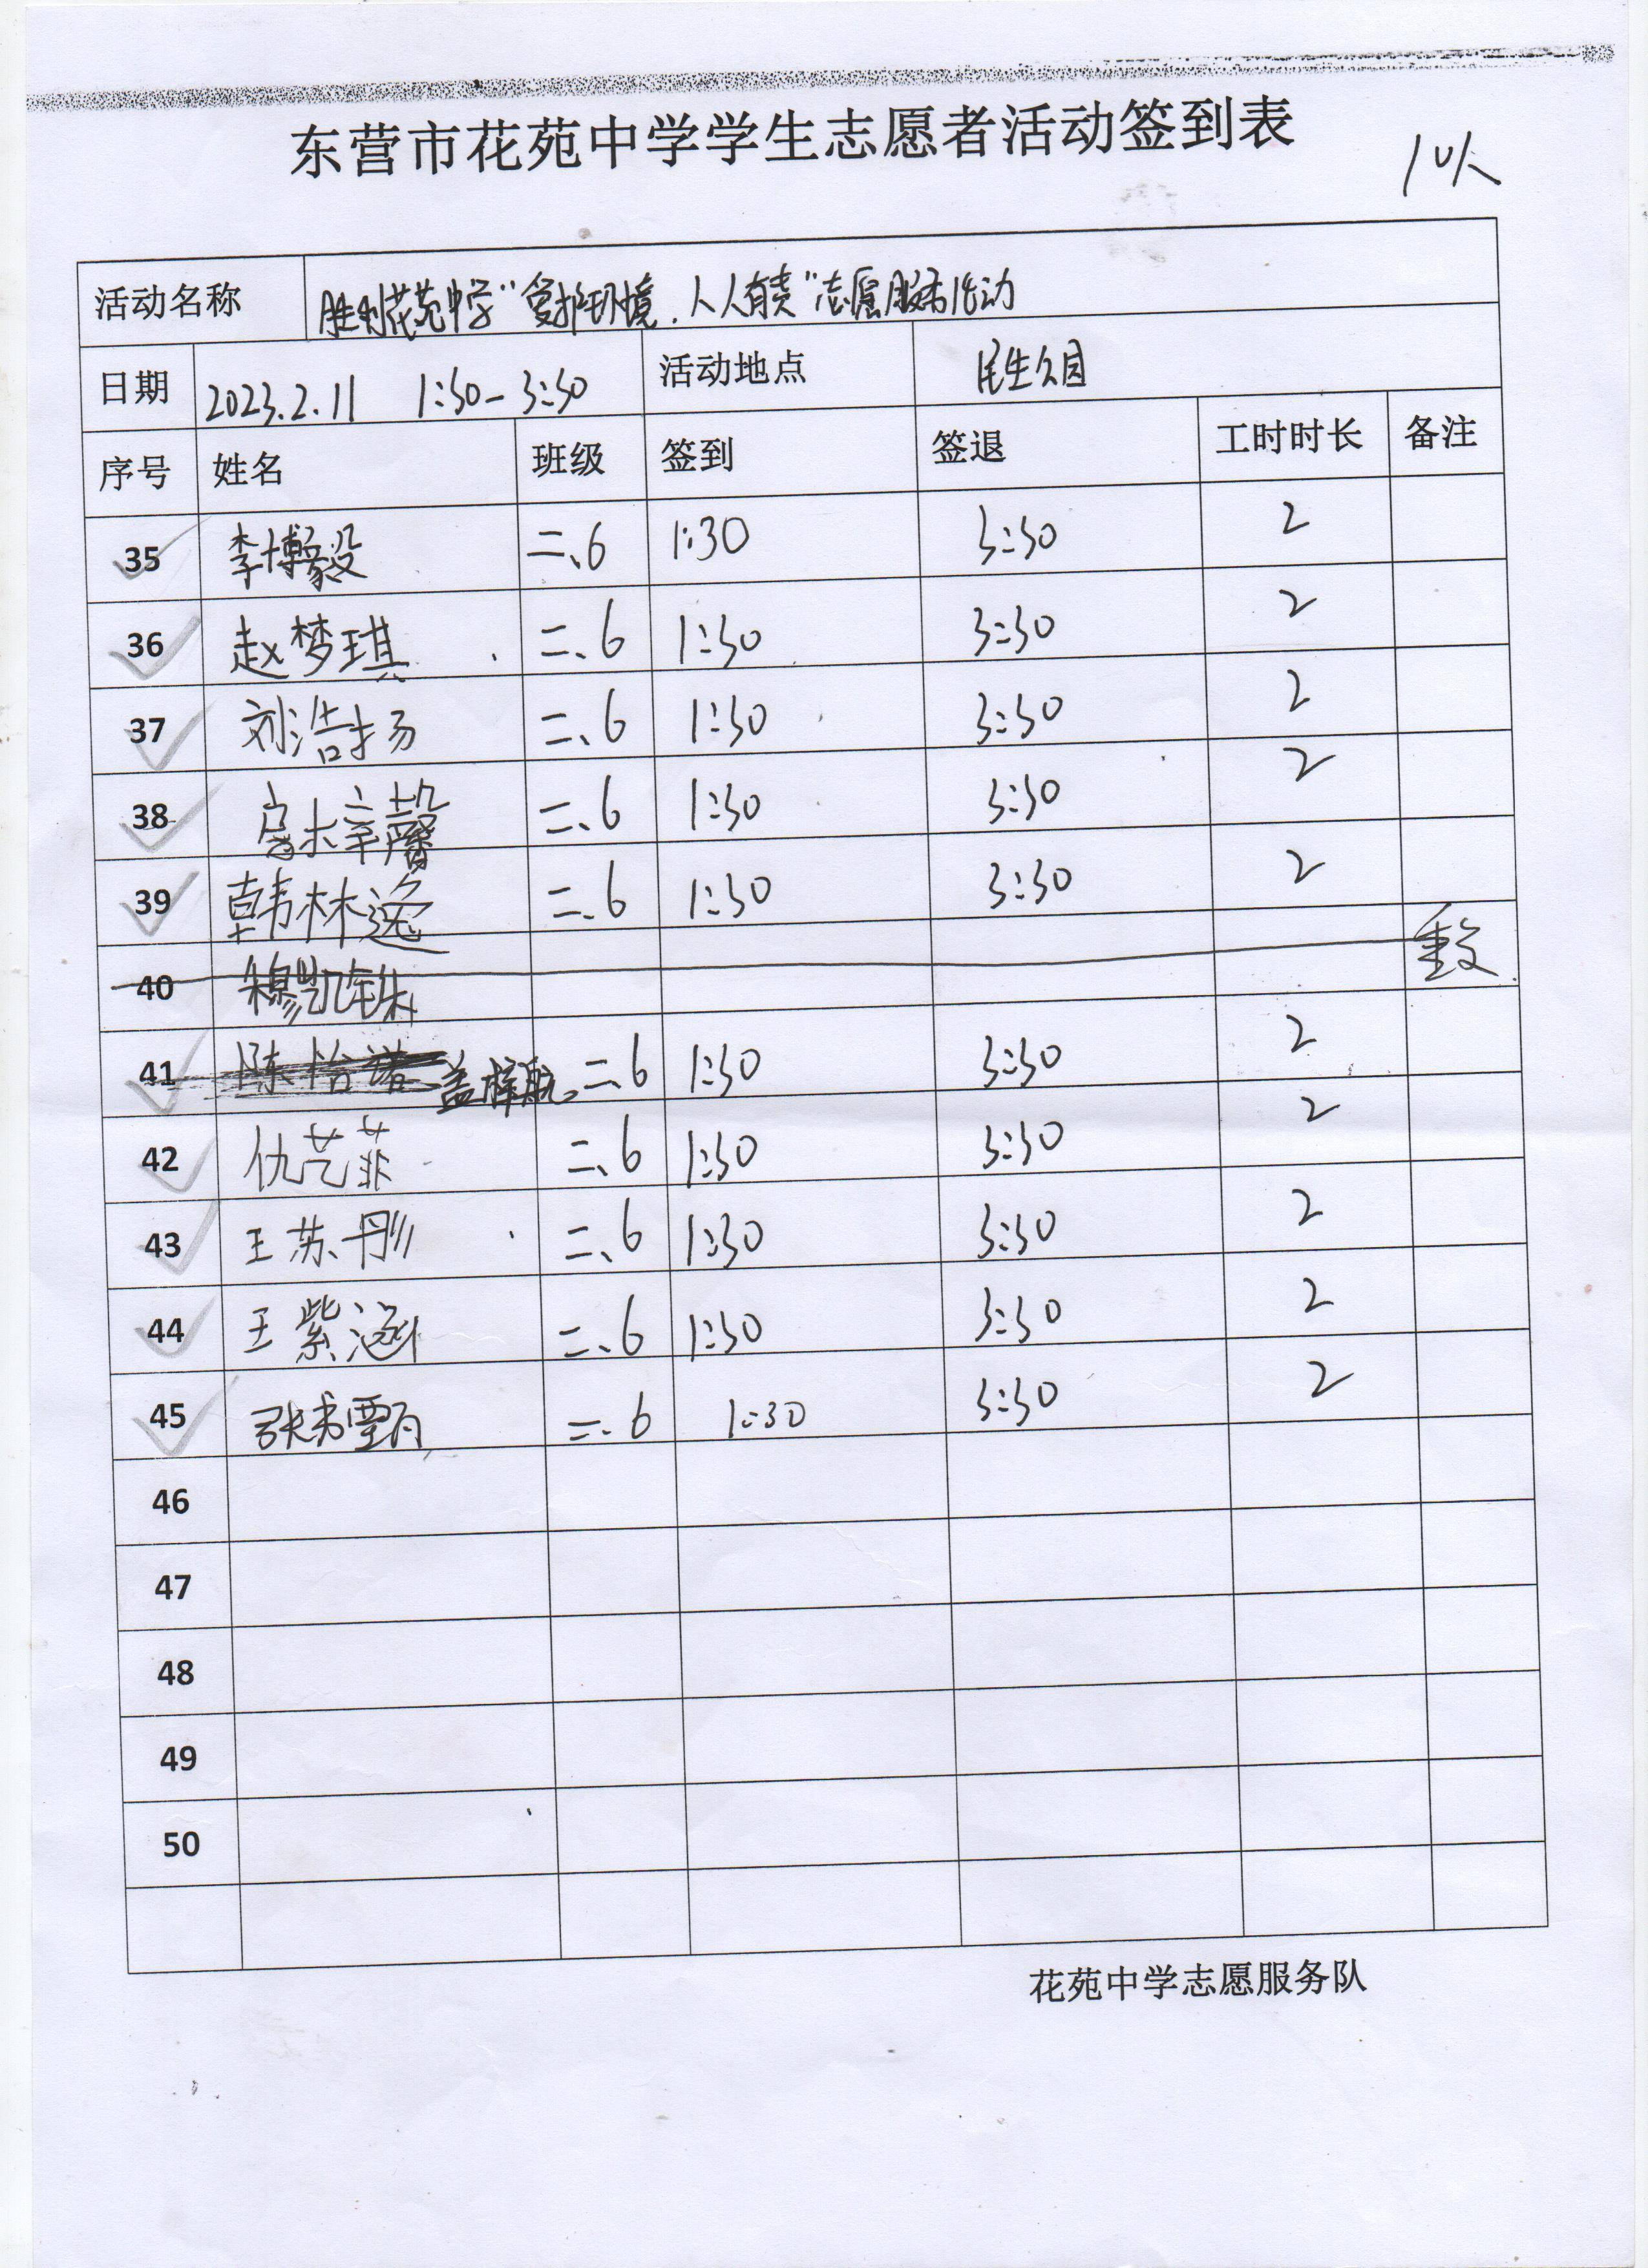 东营市花苑中学学生志愿者活动签到表
10人
活动名称 胜利花苑中学“爱护环境,人人有责”志愿服务活动
日期 2023.2.11 1:30-3:30 活动地点 民生公园
序号 姓名 班级 签到 签退 工时时长 备注
35 李博毅 二、6 1:30 3:30 2
36 赵梦琪 二、6 1:30 3:30 2
37 刘浩扬 二、6 1:30 3:30 2
38 二、6 1:30 3:30 2
39 韩林逸 二、6 1:30 3:30 2
40 重复
41 陈怡诺 盖梓航 二、6 1:30 3:30 2
42 仇艺菲 二、6 1:30 3:30 2
43 王苏彤 二、6 1:30 3:30 2
44 王紫涵 二、6 1:30 3:30 2
45 二、6 1:30 3:30 2
46
47
48
49
50
花苑中学志愿服务队